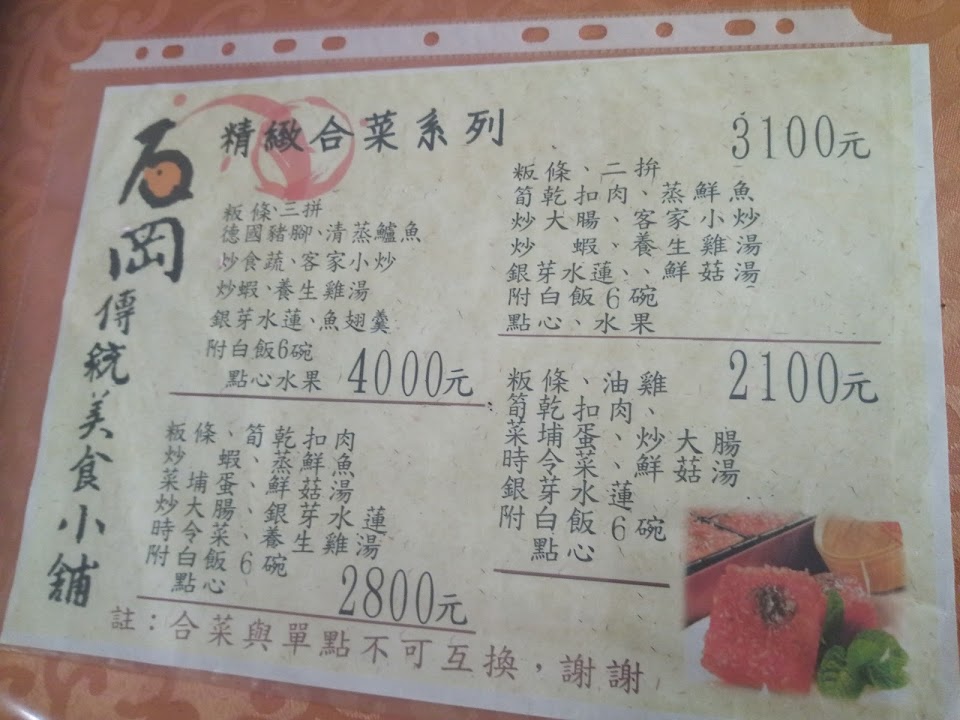 石岡傳統美食小舖
精緻合菜系列
粄條、三拼
德國豬腳、清蒸鱸魚
炒食蔬、客家小炒
炒蝦、養生雞湯
銀芽水蓮、魚翅羹
附白飯6碗
點心水果
4000元
3100元
粄條、二拚
筍乾扣肉、蒸鮮魚
炒大腸、客家小炒
炒　蝦、養生雞湯
銀芽水蓮、、鮮菇湯
附白飯6碗
點心、水果
粄條、筍乾扣肉
炒　蝦、蒸鮮魚
菜埔蛋、鮮菇湯
炒大腸、銀芽水蓮
時令菜、養生雞湯
附白飯6碗
點心
2800元
2100元
粄條、油雞
筍乾扣肉、
菜埔蛋、炒大腸
時令菜、鮮菇湯
銀芽水蓮
附白飯6碗
點心
註：合菜與單點不可互換，謝謝